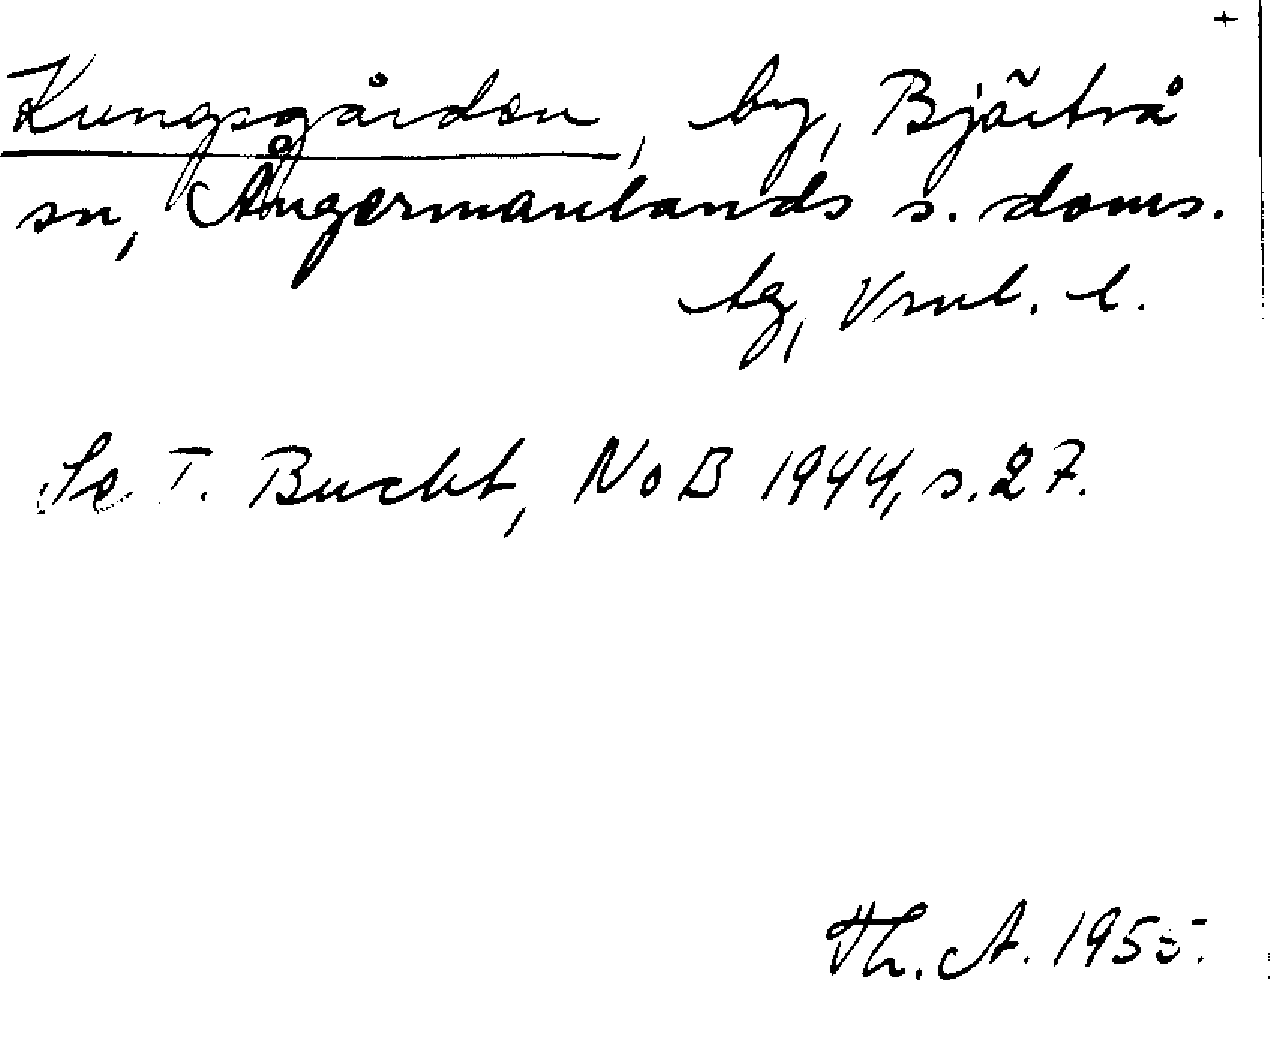 +
Kungsgården, by, Bjärtrå
sn, Ångermanlands s. doms.
tg, Vrnl. l.
Se T. Bucht, NoB 1944, s. 27.
Th. A. 1955.